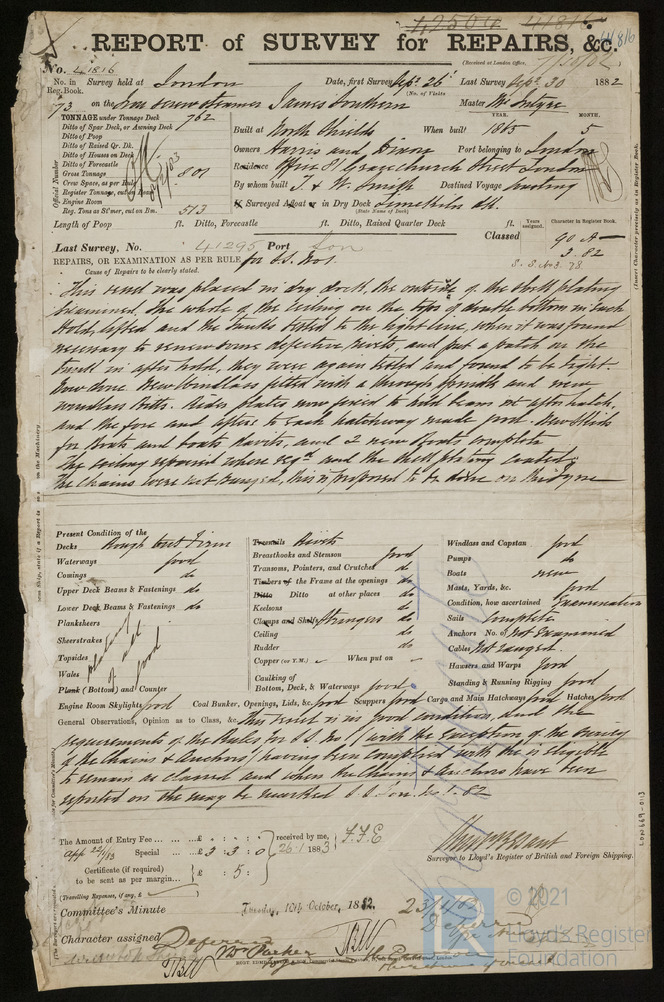 42504 41816
41816
REPORT of SURVEY for REPAIRS, &c.
(Received at London Office, 7/10/82
No. 41816
No. in Reg. Book. Survey held at London Date, first Survey Sept. 26 Last Survey Sept. 30 1882
(No. of Visits
73 on the Iron Screw Steamer James Southern Master McIntyre
TONNAGE under Tonnage Deck 762
Ditto of Spar Deck, or Awning Deck
Ditto of Poop
Ditto of Raised Qr. Dk.
Ditto of Houses on Deck
Ditto of Forecastle
Gross Tonnage 801
Crew Space, as per Rule
Register Tonnage, cut on Beam
Engine Room
Reg. Tons as St'mer, cut on Bm. 513
Official Number
YEAR. MONTH.
Built at North Shields When built 1865 5
Owners Harris and Dixon Port belonging to London
Residence Office 81 Gracechurch Street London
By whom built T. & W. Smith Destined Voyage
If Surveyed Afloat or in Dry Dock Limekiln Dk.
(State Name of Dock)
Length of Poop ft. Ditto, Forecastle ft. Ditto, Raised Quarter Deck ft.
Years assigned. Character in Register Book.
Classed 90 A
3.82
S.S. No 3. 78
(Insert Character precisely as in Register Book.
Last Survey, No. 41295 Port Lon
REPAIRS, OR EXAMINATION AS PER RULE, for S.S. No 1.
Cause of Repairs to be clearly stated.
This vessel was placed in dry dock, the outside of the shell plating
examined, the whole of the ceiling on the tops of double bottom in each
Hold, lifted and the tanks tested to the light line, when it was found
necessary to renew some defective rivets and put a patch on the
tunnel in after hold, they were again tested and found to be tight.
Now done New Windlass fitted with a through spindle and new
windlass Bitts. plates now fitted to hold beams in after hatch,
and the fore and afters to each hatchway made good. New
for Boats and boats davits, and 2 new Boats complete
The caulking repaired where reqd. and the shell plating coated.
The Chains were not ranged, this is proposed to be done on the Tyne
Present Condition of the
Decks Rough but Firm
Waterways good
Comings do
Upper Deck Beams & Fastenings do
Lower Deck Beams & Fastenings do
Planksheers
Sheerstrakes
Topsides
Wales
Plank (Bottom) and Counter
plating of all good
Treenails Rivets
Breasthooks and Stemson good
Transoms, Pointers, and Crutches do
Timbers of the Frame at the openings do
Ditto Ditto at other places do
Keelsons do
Clamps and Shelfs Stringers do
Ceiling do
Rudder do
Copper (or Y.M.) When put on
Caulking of
Bottom, Deck, & Waterways good
Windlass and Capstan good
Pumps do
Boats new
Masts, Yards, &c. good
Condition, how ascertained Examination
Sails Complete
Anchors No. of Not Examined
Cables Not ranged
Hawsers and Warps good
Standing & Running Rigging good
Engine Room Skylights good Coal Bunker, Openings, Lids, &c. good Scuppers good Cargo and Main Hatchways good Hatches good
General Observations, Opinion as to Class, &c. This vessel is in good condition, and the
requirements of the Rules for S.S. No 1 (with the exception of the Survey
of the Chains & Anchors) having been complied with she is eligible
to remain as classed and when the Chains & Anchors have been
reported on she may be marked S.S. Lon. No. 1. 82
The Amount of Entry Fee ... ... ... £ : : received by me,
Special ... ... £ 3 : 3 : 0 26.1.1883
F.F.E
Certificate (if required)
to be sent as per margin... £ : 5 :
(Travelling Expenses, if any, £
Surveyor to Lloyd's Register of British and Foreign Shipping.
LON669-0113
Committee's Minute Tuesday, 10th October, 1882. 23/1/83
Deferred
Character assigned Deferred
© 2021
Lloyd's Register
Foundation